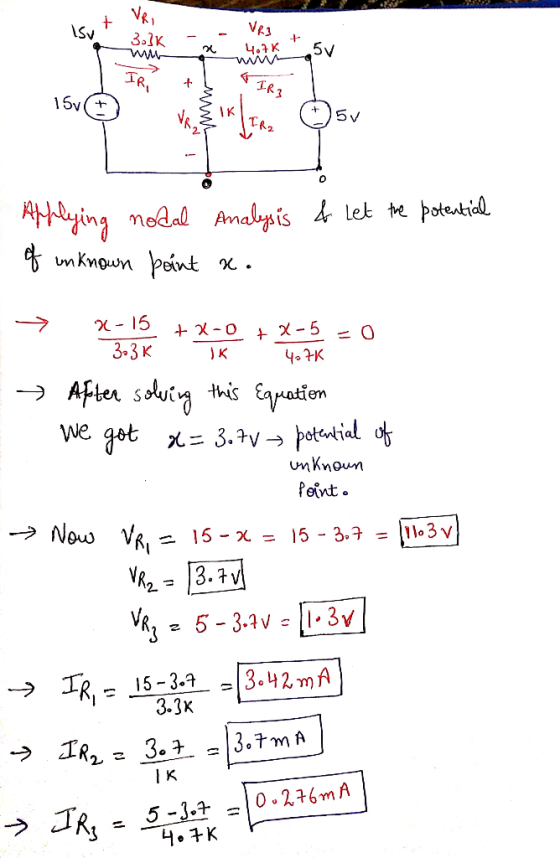 + VR1 - - VR3 +
15v 3.3K x 4.7K 5V
IR1 + IR3
15v + VR2 1K IR2 + 5v
-
0
Applying nodal Analysis & Let the potential
of unknown point x.
→ x-15/3.3K + x-0/1K + x-5/4.7K = 0
→ After solving this Equation
We got x = 3.7v → potential of
unknown
Point.
→ Now VR1 = 15-x = 15-3.7 = 11.3v
VR2 = 3.7v
VR3 = 5-3.7v = 1.3v
→ IR1 = 15-3.7/3.3K = 3.42mA
→ IR2 = 3.7/1K = 3.7mA
→ IR3 = 5-3.7/4.7K = 0.276mA